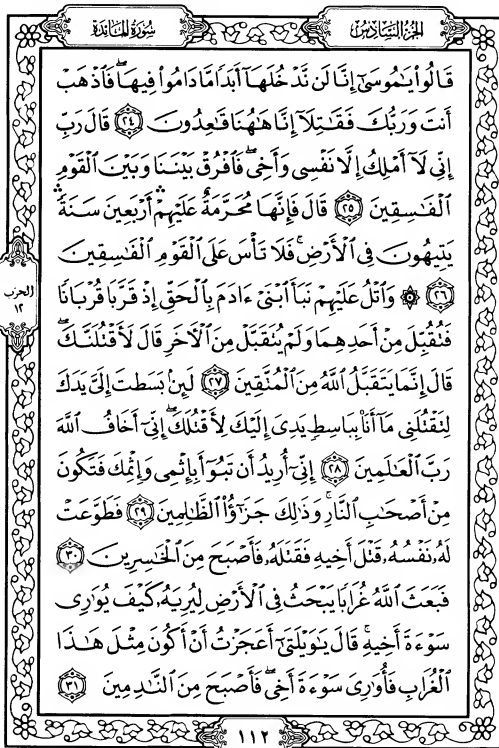 سُورَةُ المَائِدَةِ
الجُزْءُ السَّادِسُ
قَالُوا۟ يَٰمُوسَىٰٓ إِنَّا لَن نَّدْخُلَهَآ أَبَدًا مَّا دَامُوا۟ فِيهَا ۖ فَٱذْهَبْ
أَنتَ وَرَبُّكَ فَقَٰتِلَآ إِنَّا هَٰهُنَا قَٰعِدُونَ ٢٤ قَالَ رَبِّ
إِنِّى لَآ أَمْلِكُ إِلَّا نَفْسِى وَأَخِى ۖ فَٱفْرُقْ بَيْنَنَا وَبَيْنَ ٱلْقَوْمِ
ٱلْفَٰسِقِينَ ٢٥ قَالَ فَإِنَّهَا مُحَرَّمَةٌ عَلَيْهِمْ ۛ أَرْبَعِينَ سَنَةً ۛ
يَتِيهُونَ فِى ٱلْأَرْضِ ۚ فَلَا تَأْسَ عَلَى ٱلْقَوْمِ ٱلْفَٰسِقِينَ
٢٦ ۞ وَٱتْلُ عَلَيْهِمْ نَبَأَ ٱبْنَىْ ءَادَمَ بِٱلْحَقِّ إِذْ قَرَّبَا قُرْبَانًا
فَتُقُبِّلَ مِنْ أَحَدِهِمَا وَلَمْ يُتَقَبَّلْ مِنَ ٱلْءَاخَرِ قَالَ لَأَقْتُلَنَّكَ ۖ
قَالَ إِنَّمَا يَتَقَبَّلُ ٱللَّهُ مِنَ ٱلْمُتَّقِينَ ٢٧ لَئِنۢ بَسَطتَ إِلَىَّ يَدَكَ
لِتَقْتُلَنِى مَآ أَنَا۠ بِبَاسِطٍ يَدِىَ إِلَيْكَ لِأَقْتُلَكَ ۖ إِنِّىٓ أَخَافُ ٱللَّهَ
رَبَّ ٱلْعَٰلَمِينَ ٢٨ إِنِّىٓ أُرِيدُ أَن تَبُوٓأَ بِإِثْمِى وَإِثْمِكَ فَتَكُونَ
مِنْ أَصْحَٰبِ ٱلنَّارِ ۚ وَذَٰلِكَ جَزَٰٓؤُا۟ ٱلظَّٰلِمِينَ ٢٩ فَطَوَّعَتْ
لَهُۥ نَفْسُهُۥ قَتْلَ أَخِيهِ فَقَتَلَهُۥ فَأَصْبَحَ مِنَ ٱلْخَٰسِرِينَ ٣٠
فَبَعَثَ ٱللَّهُ غُرَابًا يَبْحَثُ فِى ٱلْأَرْضِ لِيُرِيَهُۥ كَيْفَ يُوَٰرِى
سَوْءَةَ أَخِيهِ ۚ قَالَ يَٰوَيْلَتَىٰٓ أَعَجَزْتُ أَنْ أَكُونَ مِثْلَ هَٰذَا
ٱلْغُرَابِ فَأُوَٰرِىَ سَوْءَةَ أَخِى ۖ فَأَصْبَحَ مِنَ ٱلنَّٰدِمِينَ ٣١
الحزب
١٢
١١٢